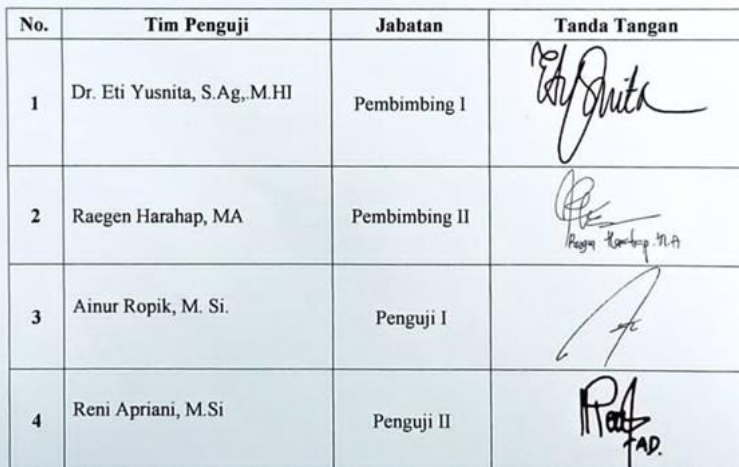 No. Tim Penguji Jabatan Tanda Tangan
1 Dr. Eti Yusnita, S.Ag,.M.HI Pembimbing I
2 Raegen Harahap, MA Pembimbing II
Raegen Harahap. M.A
3 Ainur Ropik, M. Si. Penguji I
4 Reni Apriani, M.Si Penguji II
AD.